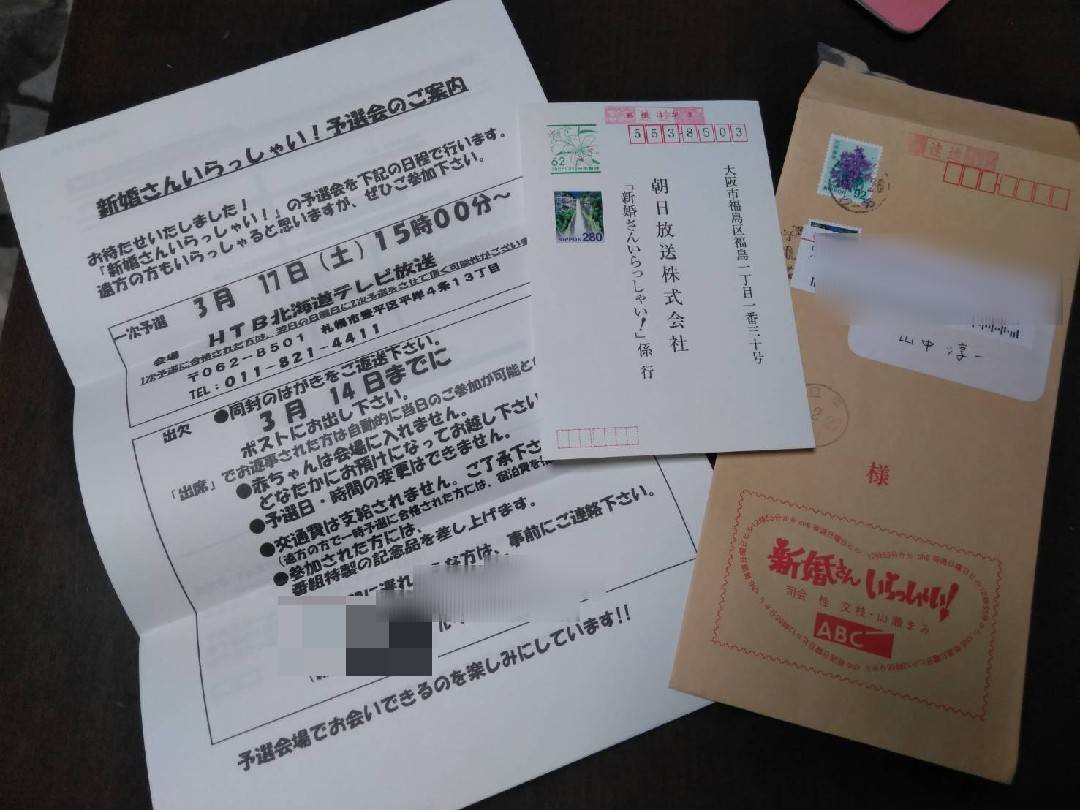 新婚さんいらっしゃい!予選会のご案内
お待たせいたしました!
「新婚さんいらっしゃい!」の予選会を下記の日程で行います。
遠方の方もいらっしゃると思いますが、ぜひご参加下さい。
一次予選
3月 17日(土)15時00分~
会場
HTB北海道テレビ放送
〒062-8501 札幌市豊平区平岸4条13丁目
TEL:011-821-4411
出欠
●同封のはがきをご返送下さい。
3月 14日までに
ポストにお出し下さい。
「出席」でお返事された方は自動的に当日のご参加が可能と
●赤ちゃんは会場に入れません。
どなたかにお預けになってお越し下さい
●予選日・時間の変更はできません。
●交通費は支給されません。ご了承下さ
●参加された方には、
番組特製の記念品を差し上げます。
な方は、事前にご連絡下さい。
予選会場でお会いできるのを楽しみにしています!!
郵便はがき
5538503
62
NIPPON 280
大阪市福島区福島一丁目一番三十号
朝日放送株式会社
「新婚さんいらっしゃい!」係 行
速達
82
山中 淳一
様
新婚さん いらっしゃい!
司会 桂 文枝・山瀬まみ
ABC